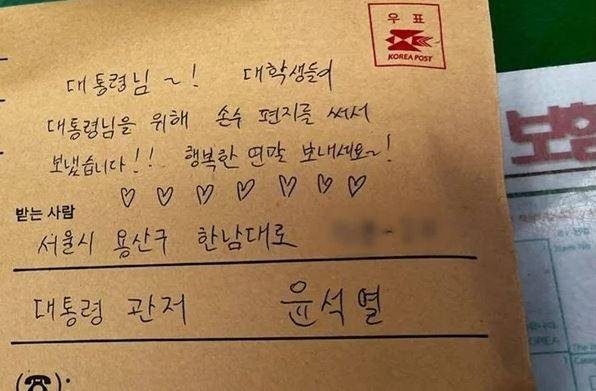 우 표
KOREA POST
대통령님~! 대학생들이
대통령님을 위해 손수 편지를 써서
보냈습니다!! 행복한 연말 보내세요~!
♡ ♡ ♡ ♡ ♡ ♡ ♡
받는 사람
서울시 용산구 한남대로
대통령 관저 윤석열
(☎):
보험